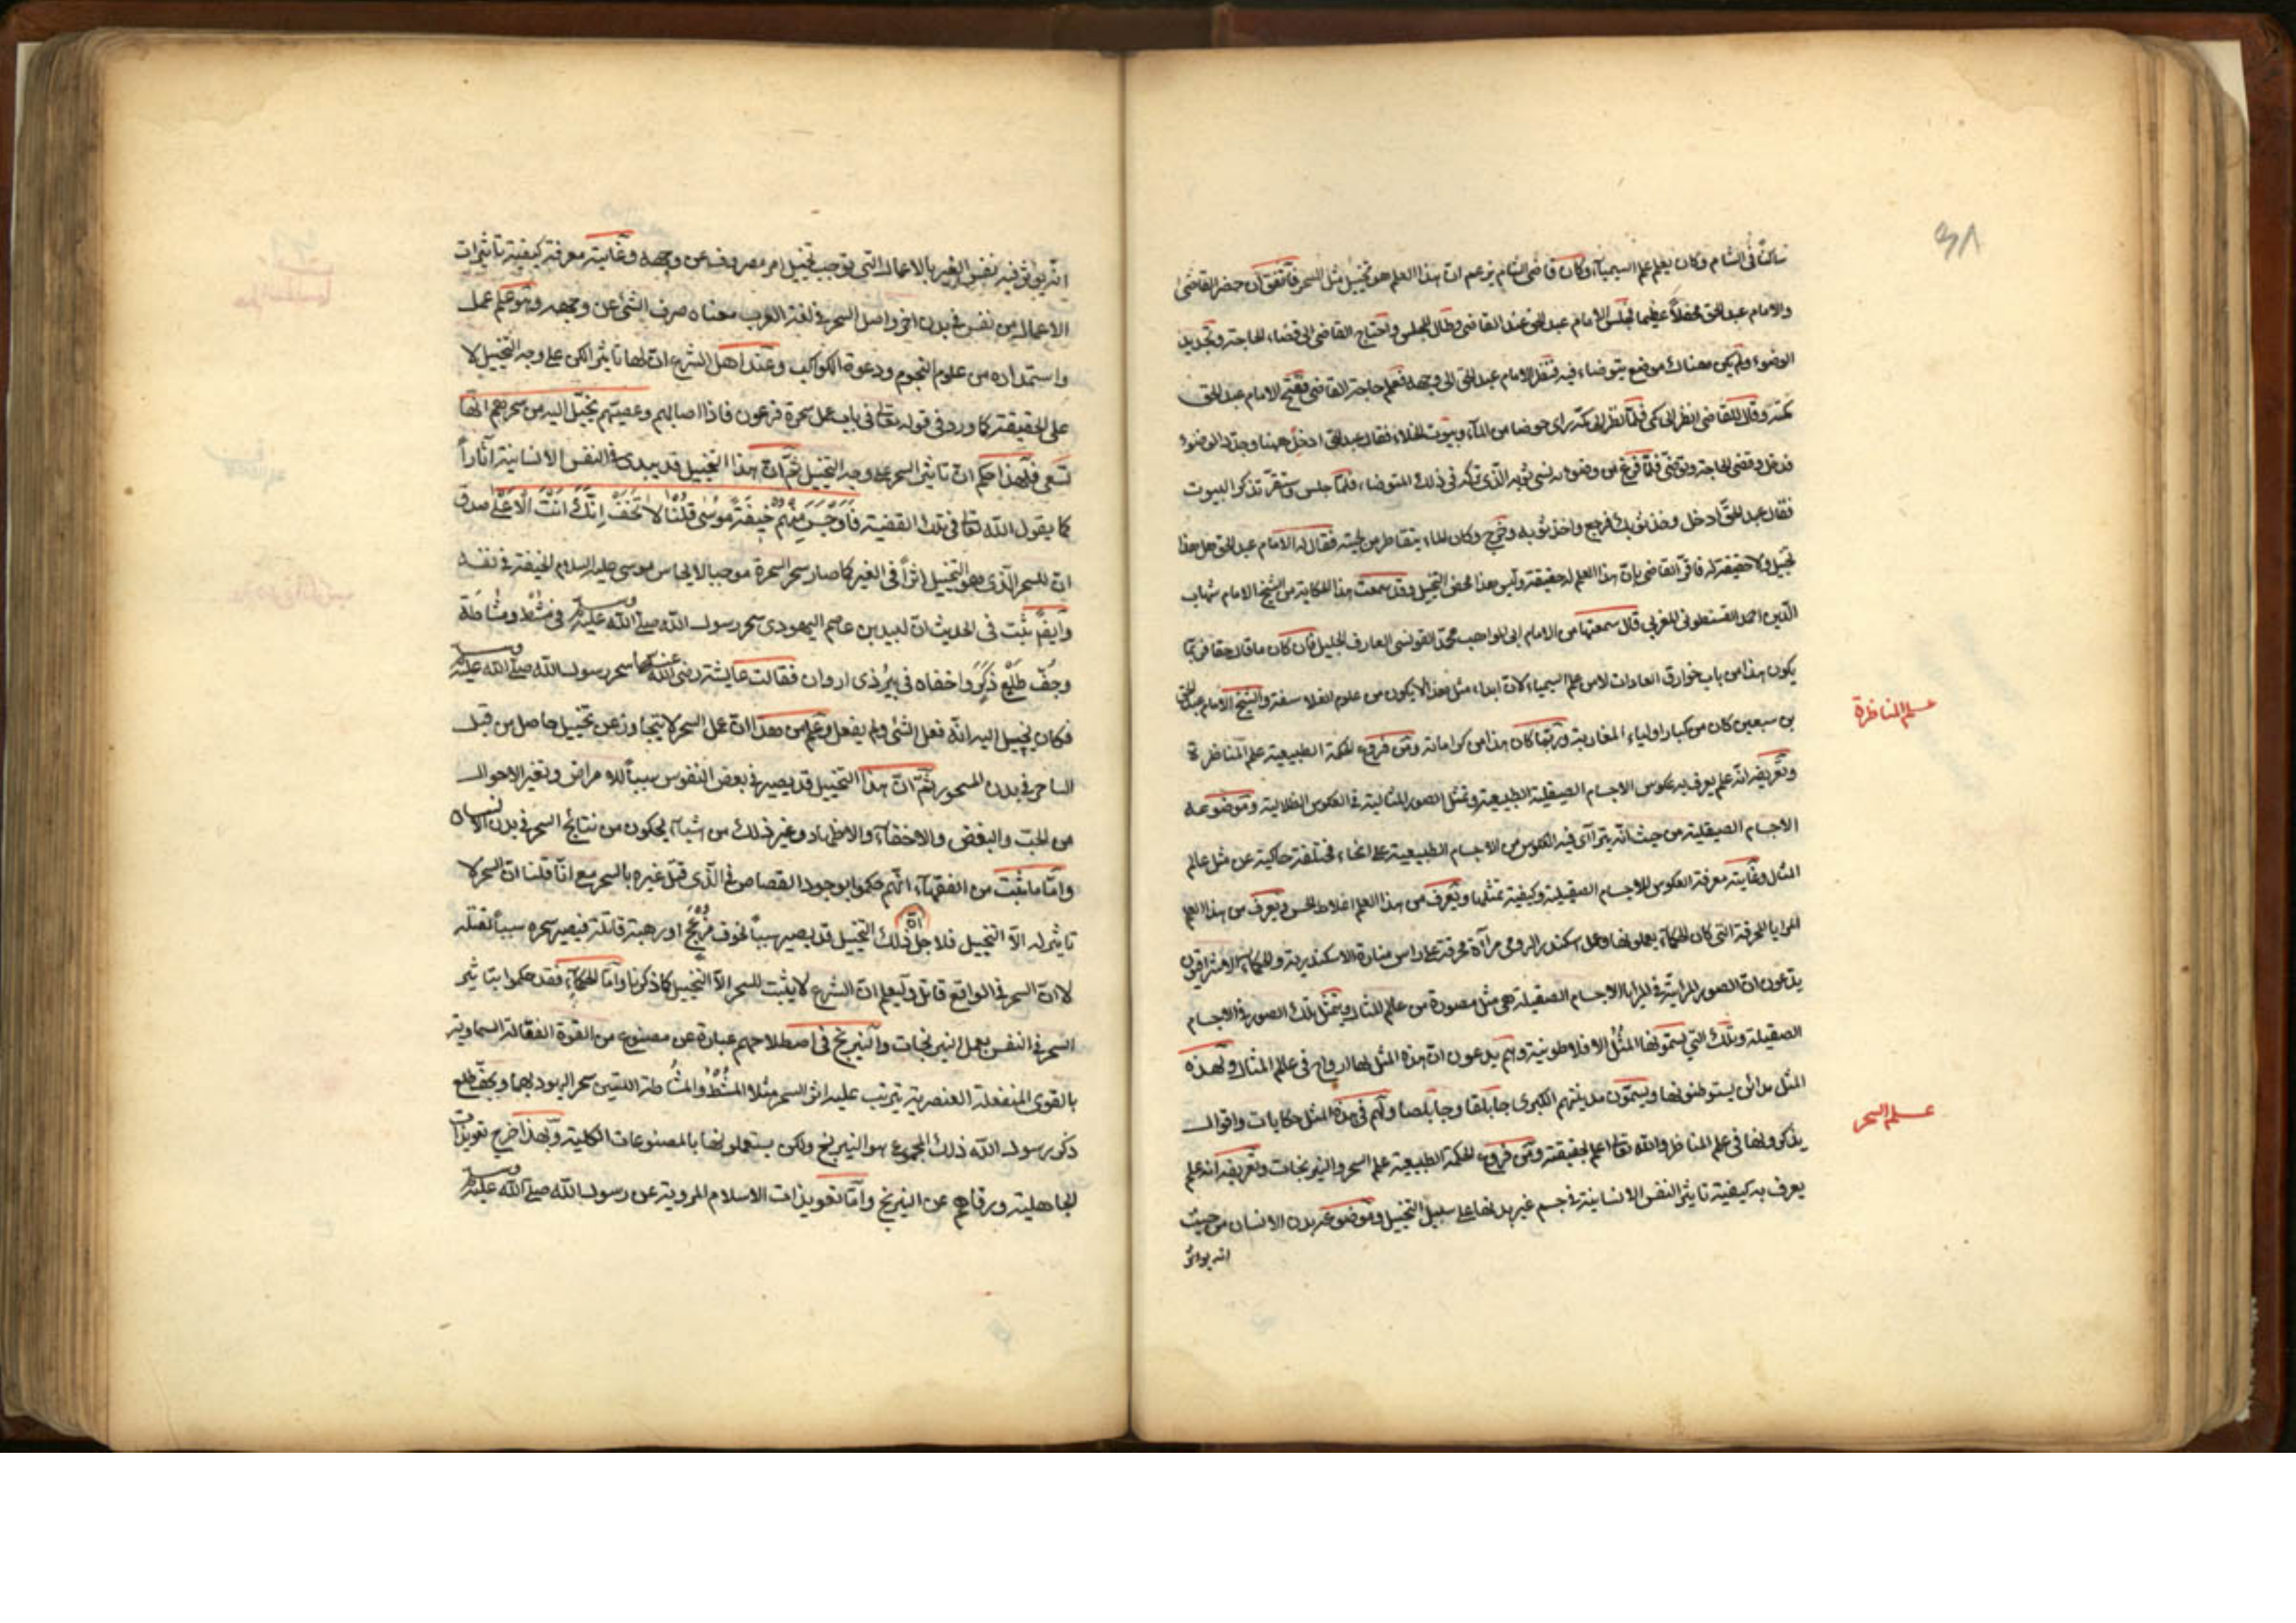 ساكنا في الشام وكان يعلم علم السيمياء وكان قاضي الشام يزعم ان هذا العلم هو تخييل مثل السحر فاتفق ان حضر القاضي
والامام عبد الحق محفلا عظيما فجلس الامام عبد الحق عند القاضي وطال المجلس واحتاج القاضي الى قضاء الحاجة وتجديد
الوضوء ولم يكن هناك موضع يتوضاء فيه فنظر الامام عبد الحق الى وجهه فعلم حاجة القاضي ففتح الامام عبد الحق
كمه وقال للقاضي انظر الى كمي فلما نظر الى كمه راى حوضا من الماء وبيوت الخلاء فقال عبد الحق ادخل ههنا وجدد الوضوء
فدخل وقضى الحاجة وتوضى فلما فرغ من وضوئه نسى ثوبه الذي تركه في ذلك المتوضاء فلما جلس واستقر تذكر البيوت
فقال عبد الحق ادخل وخذ ثوبك فرجع واخذ ثوبه وخرج وكان الماء يتقاطر من لحيته فقال له الامام عبد الحق هل هذا
تخييل ولا حقيقة له فاقر القاضي بان هذا العلم له حقيقة وليس هذا محض التخييل وقد سمعت هذا الحكاية من الشيخ الامام شهاب
الدين احمد القسنطوني المغربي قال سمعتها من الامام ابي المواهب محمد التونسي العارف الجليل فان كان ما قال حقا فربما
يكون هذا من باب خوارق العادات لا من علم السيمياء لان ابداء مثل هذا لا يكون من علوم الفلاسفة والشيخ الامام عبد الحق
بن سبعين كان من كبار اولياء المغاربة وربما كان هذا من كراماته ومن فروع الحكمة الطبيعية علم المناظرة
علم المناظرة
وتعريفه انه علم يعرف به عكوس الاجسام الصيقلية الطبيعية وتمثل الصور المثالية في العكوس الظلالية وموضوعه
الاجسام الصيقلية من حيث انه يتراآى فيه العكوس من الاجسام الطبيعية على انحاء مختلفة حاكية عن مثل عالم
المثال وغايته معرفة العكوس للاجسام الصيقلية وكيفية تمثلها ويعرف من هذا العلم اغلاط الحس ويعرف من هذا العلم
المرايا المحرقة التي كان الحكماء يعملونها وعمل اسكندر الرومي مرآة محرقة على راس منارة الاسكندرية والحكماء الاشراقيون
يدعون ان الصور المرايية في المرايا الاجسام الصقيلة هي مثل مصورة من عالم المثال ويتمثل تلك الصور في الاجسام
الصقيلة وتلك التي يسمونها المُثُل الافلاطونية وهم يدعون ان هذه المثل لها ارواح في عالم المثال ولهذه
المثل مدائن يستوطنونها ويسمون مدينتهم الكبرى جابلقا وجابلصا ولهم في هذه المثل حكايات واقوال
يذكرونها في علم المناظر والله تعالى اعلم بحقيقته ومن فروع الحكمة الطبيعية علم السحر والنيرنجات وتعريفه انه علم
علم السحر
يعرف به كيفية تاثير النفس الانسانية في جسم غير بدنها على سبيل التخييل وموضوعه بدن الانسان من حيث
انه يوثر
انه يوثر فيه نفس الغير بالاعمال التي توجب تخييل امر مصروف عن وجهه وغايته معرفة كيفية تاثيرات
الاعمال من نفس في بدن اخر واصل السحر في لغة العرب معناه صرف الشئ عن وجهه وهو علم عمل
واستمداده من علوم النجوم ودعوة الكواكب وعند اهل الشرع ان لها تاثير لكن على وجه التخييل لا
على الحقيقة كما ورد في قوله تعالى في باب عمل سحرة فرعون فاذا حبالهم وعصيهم يخيل اليه من سحرهم انها
تسعى فلهذا حكم ان تاثير السحر على وجه التخييل ثم ان هذا التخييل قد يبدى في النفس الانسانية اثاراً
كما يقول الله تعالى في تلك القضية فَاَوْجَسَ مِنْهُمْ خِيفَةً مُوسٰى قُلْنَا لَا تَخَفْ اِنَّكَ اَنْتَ الْاَعْلٰى صدق
ان للسحر الذي هو التخييل اثراً في الغير كما صار سحر السحرة موجبا لايجاس موسى عليه السلام الخيفة في نفسه
وايضاً ثبت في الحديث ان لبيد بن عاصم اليهودي سحر رسول الله صلى الله عليه وسلم في مُشْط ومُشاطة
وجُفّ طَلْعِ ذَكَرٍ واخفاه في بئر ذي اروان فقالت عايشة رضي الله عنها سحر رسول الله صلى الله عليه وسلم
فكان يخيل اليه انه فعل الشئ ولم يفعل وعلم من هذا ان عمل السحر لا يتجاوز عن تخييل حاصل من قبل
الساحر في بدن المسحور ثم ان هذا التخييل قد يصير في بعض النفوس سبباً للامراض وتغير الاحوال
من الحب والبغض والاخفاء والاظهار وغير ذلك من اشياء يكون من نتائج السحر في بدن الانسان
واما ما ثبت من الفقهاء انهم حكموا بوجود القصاص في الذي قتل غيره بالسحر مع انا قلنا ان السحر لا
تاثير له الا التخييل فلاجل ان ذلك التخييل قد يصير سبباً لخوف مُزْعِج او رهبة قاتلة فيصير سحره سبباً لقتله
لا ان السحر في الواقع قاتل وليعلم ان الشرع لا يثبت للسحر الا التخييل كما ذكرنا واما الحكماء فقد حكموا بتاثير
السحر في النفس بعمل النيرنجات والنيرنج في اصطلاحهم عبارة عن مصنوع من القوة الفعالة السماوية
بالقوى المنفعلة العنصرية يترتب عليه اثر السحر مثلا المُشْط والمُشاطة اللتين سحر اليهود بهما وجف طلع
ذكر رسول الله ذلك المجموع هو النيرنج ولكن يستعملونها بالمصنوعات الكلية وبهذا خرج تعويذات
الجاهلية ورقاهم عن النيرنج واما تعويذات الاسلام المروية عن رسول الله صلى الله عليه وسلم